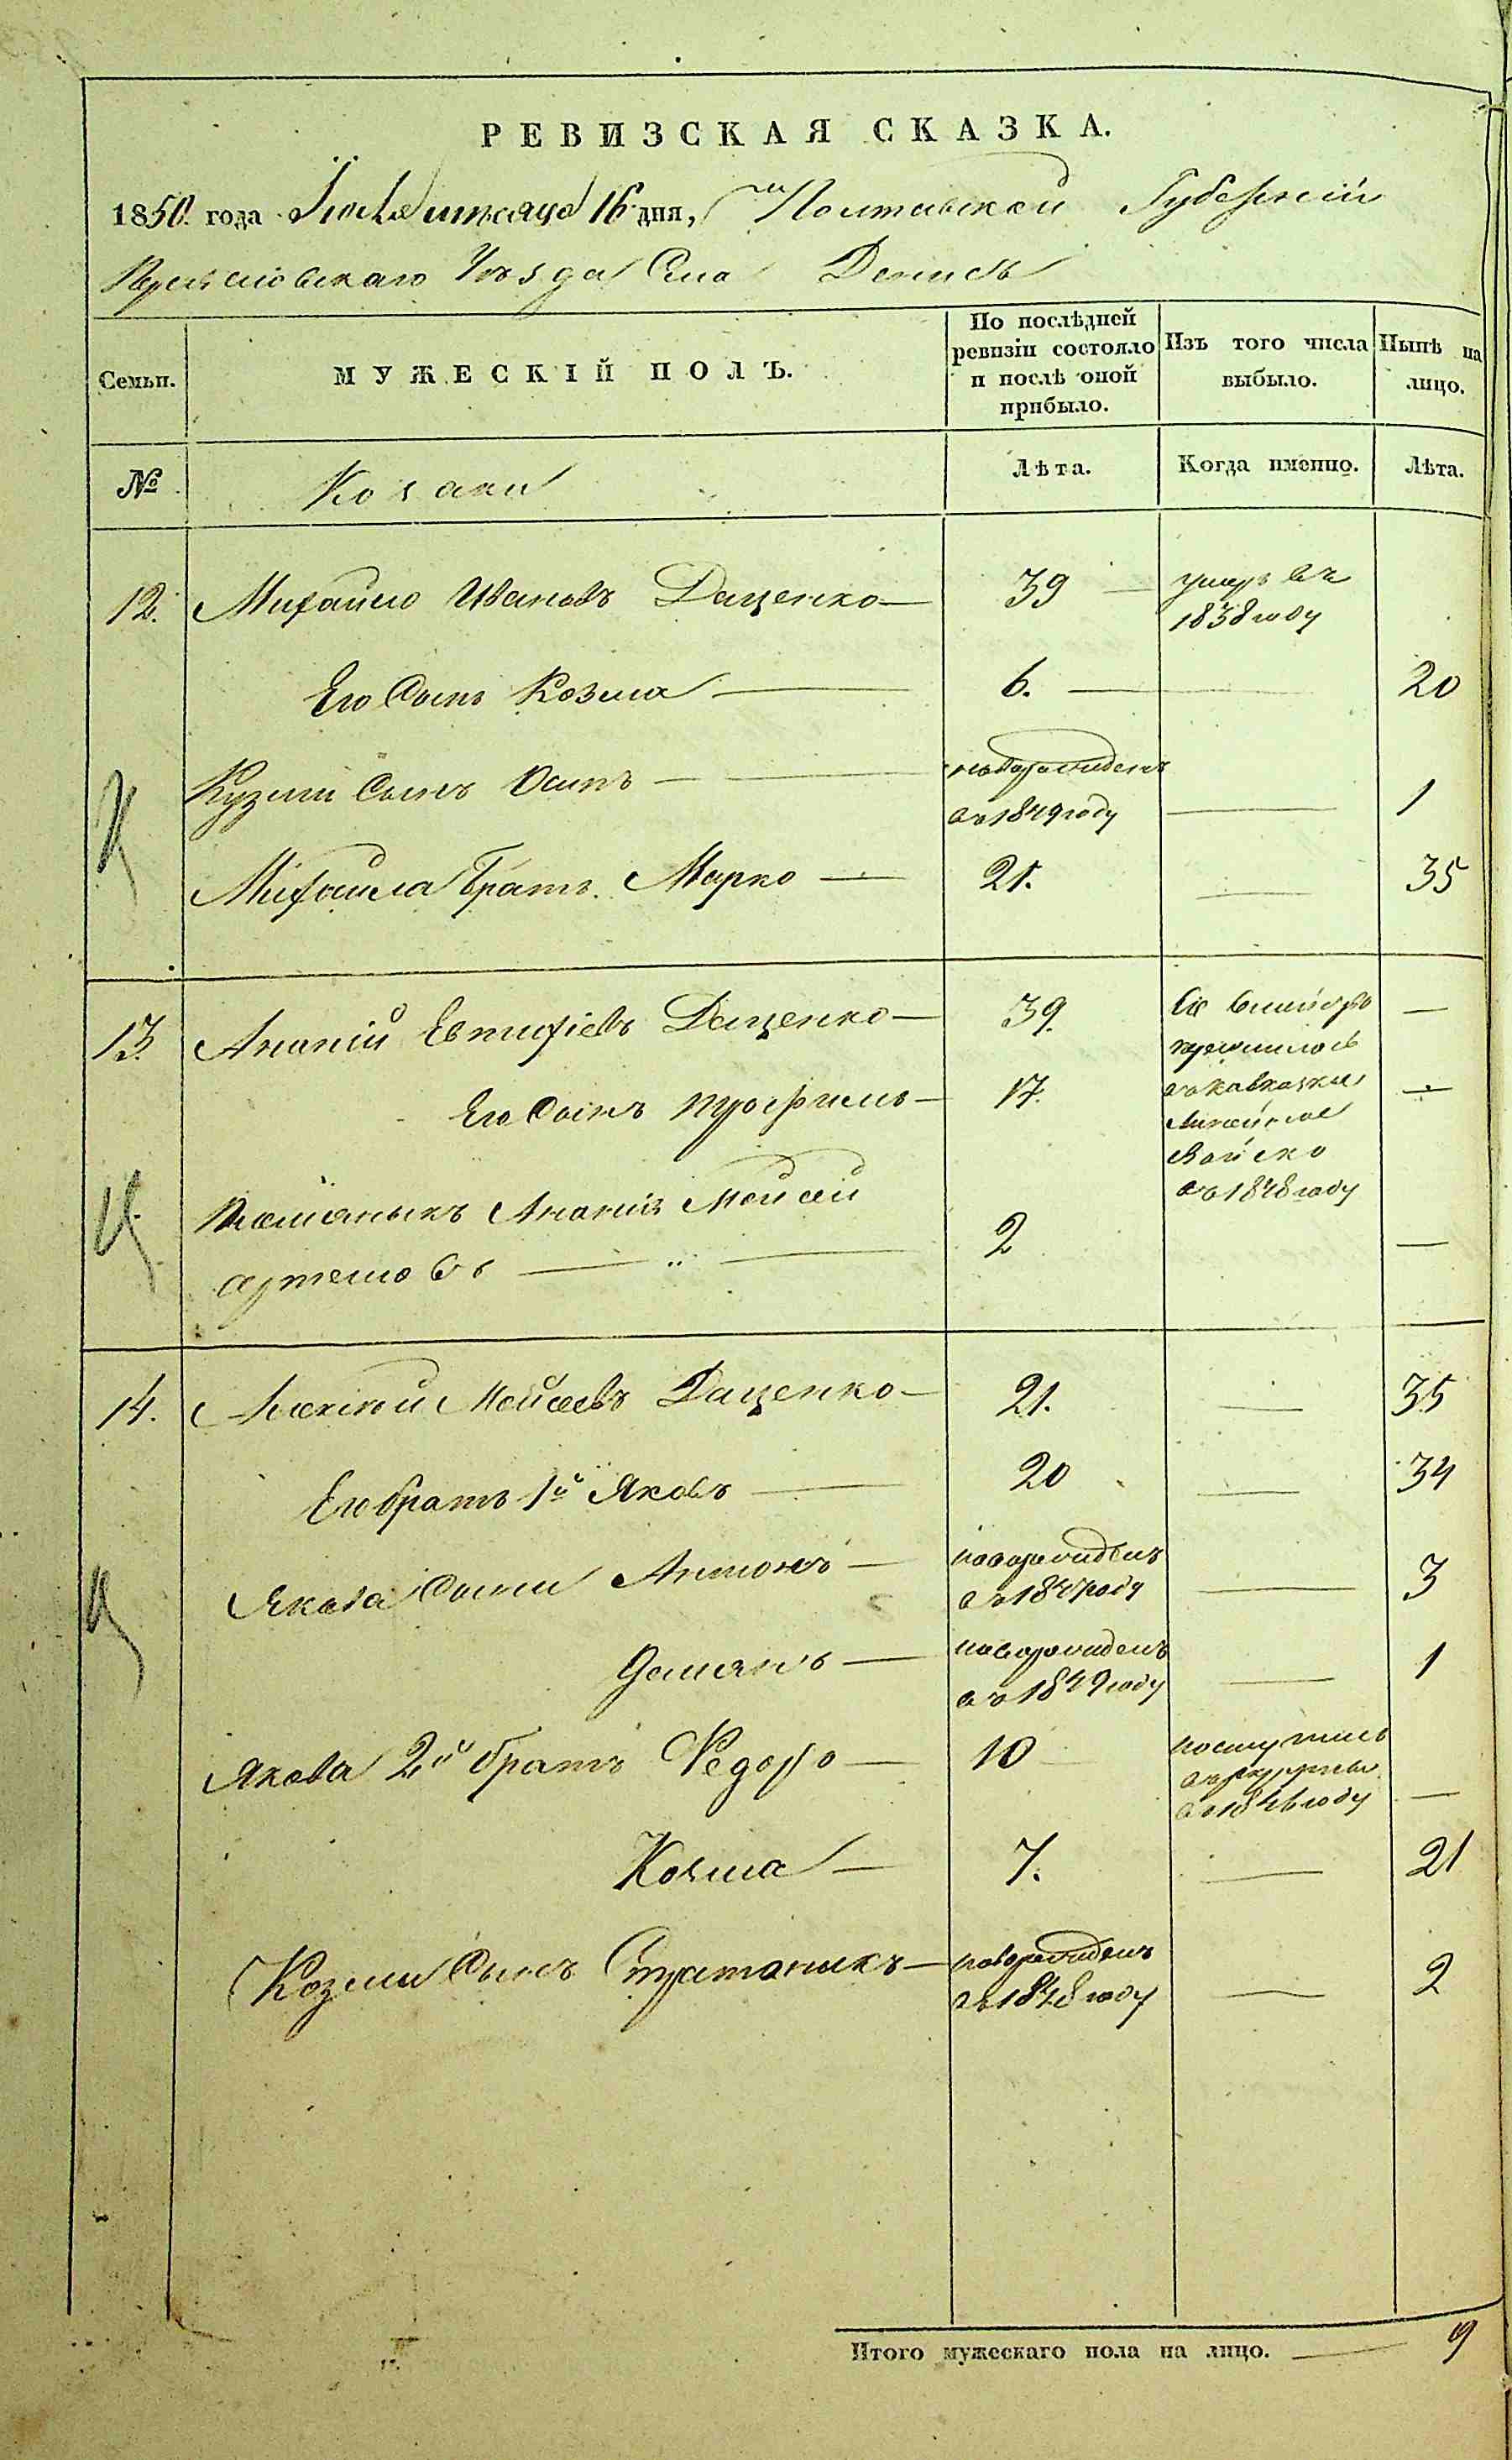 РЕВИЗСКАЯ СКАЗКА.
1850. года Іюля месяца 16 дня, Полтавской Губерніи
Переяславскаго Уезда Села Денисъ
Семьи.
МУЖЕСКІЙ ПОЛЪ.
По послѣдней
ревизіи состояло
и послѣ оной
прибыло.
Изъ того числа
выбыло.
Нынѣ на
лицо.
№
Козаки
Лѣта.
Когда именно.
Лѣта.
12. Михайло Ивановъ Даценко — 39 — умеръ въ
1838 году
Его Сынъ Козма — 6. — 20
Кузми Сынъ Осипъ — новорожденъ
въ 1849 году — 1
Михайла Братъ Марко — 21. — 35
13. Ананій Евтифіевъ Даценко — 39. Сіе Семейство —
переселилось
Его Сынъ Трофимъ — 17. въ Кавказкое —
Линейное
Войско
въ 1848 году
Племяныкъ Ананія Мойсей
Артемовъ — 2 —
14. Алексій Мойсеевъ Даценко — 21. — 35
Его братъ 1й Яковъ — 20 — 34
Якова Сыны Антонъ — новорожденъ
въ 1847 году — 3
Демянъ — новорожденъ
въ 1849 году — 1
Якова 2й братъ Федоръ — 10 — поступилъ
въ рекруты
въ 1846 году —
Козма — 7. — 21
Козми Сынъ Стратоныкъ — новорожденъ
въ 1848 году — 2
Итого мужескаго пола на лицо. — 9